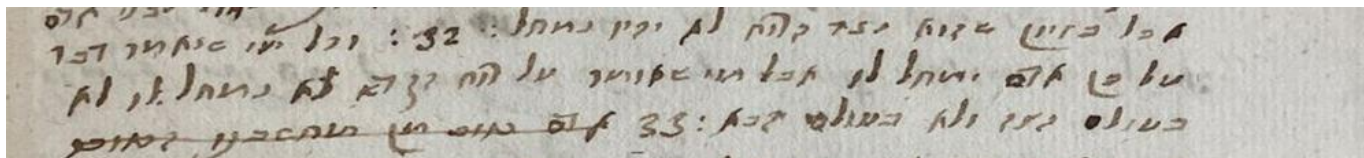 אבל בזיון שהוא נגד הרוח לא יהיה נמחל : 32 : וכל מי שיאמר דבר
על בן אדם ימחל לו אבל מי שאומר על הרוח הקדש לא נמחל לו לא
בעולם הזה ולא בעולם הבא : 33 אדם